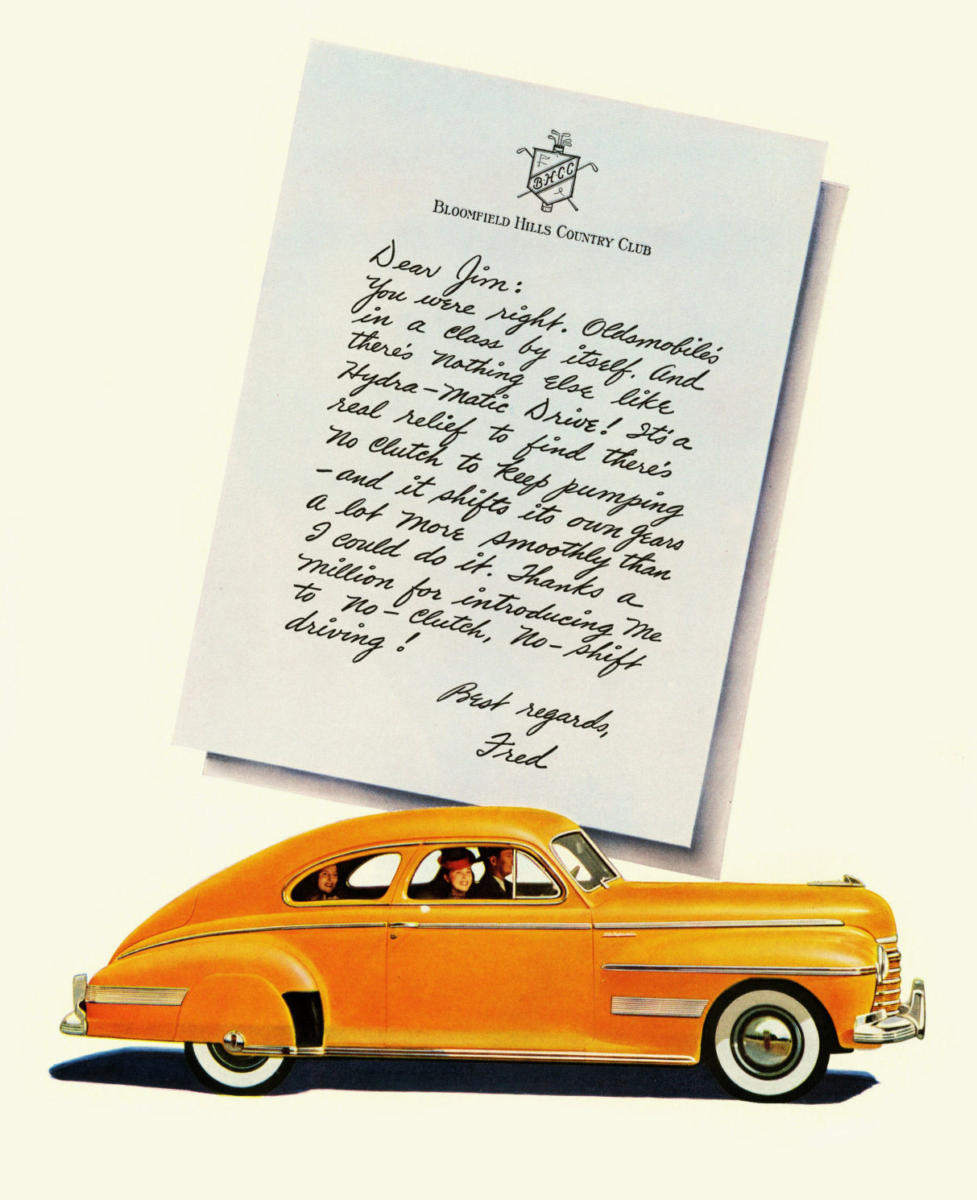 BHCC
BLOOMFIELD HILLS COUNTRY CLUB
Dear Jim:
You were right. Oldsmobile's
in a class by itself. And
there's nothing else like
Hydra-Matic Drive! It's a
real relief to find there's
no clutch to keep pumping
- and it shifts its own gears
a lot more smoothly than
I could do it. Thanks a
million for introducing me
to no-clutch, no-shift
driving!
Best regards,
Fred